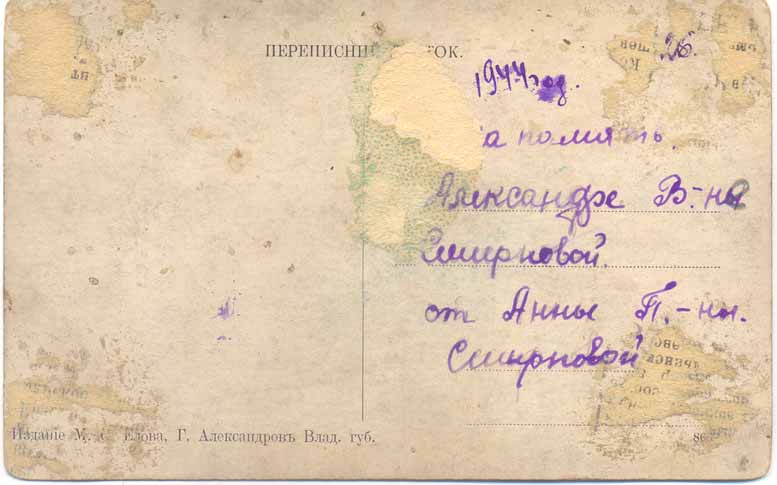 ПЕРЕПИСНЫ ТОК.
26.
1944 год.
а память.
Александре В.-не
Смирновой.
от Анны П.-ны.
Смирновой
Изданіе М. С. лова, Г. Александровъ Влад. губ.